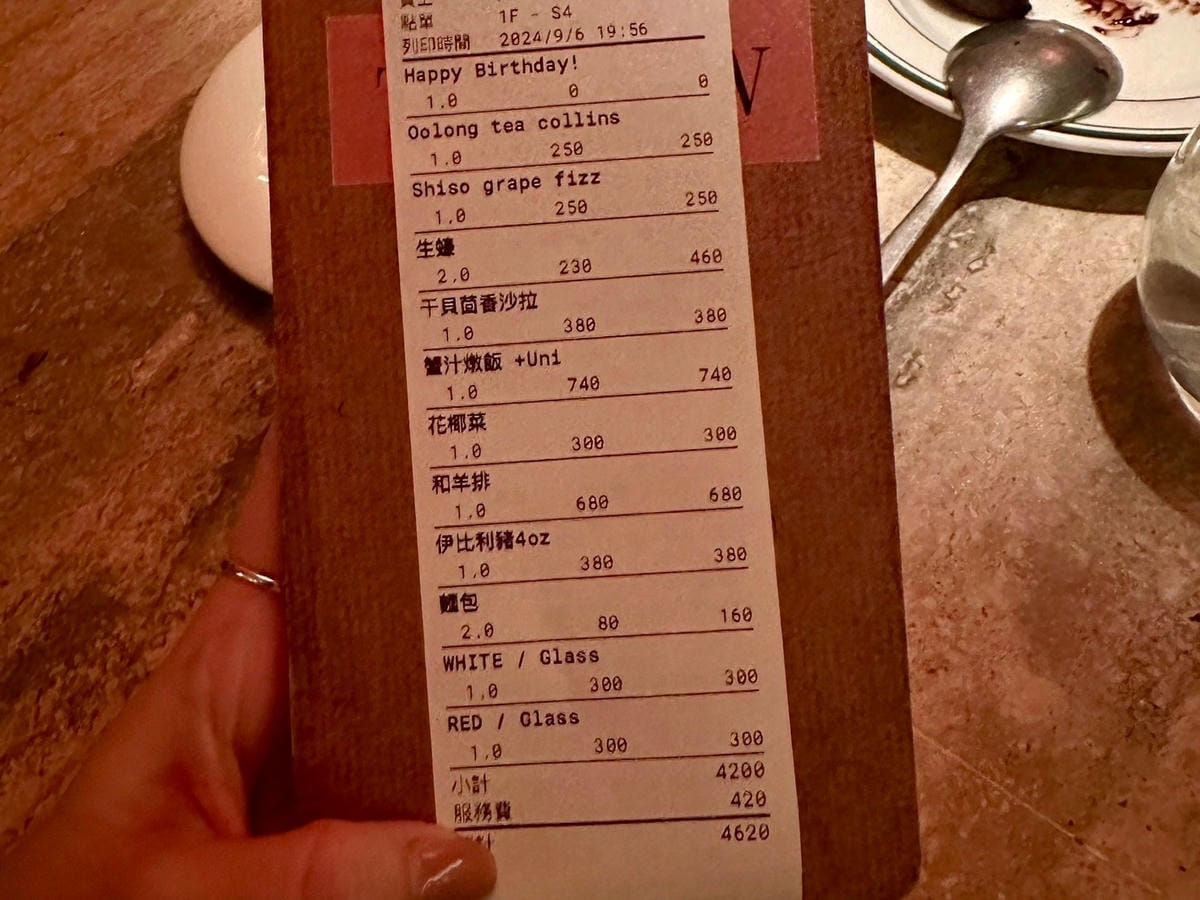 點單 1F - S4
列印時間 2024/9/6 19:56
Happy Birthday!
1.0 0 0
Oolong tea collins
1.0 250 250
Shiso grape fizz
1.0 250 250
生蠔
2.0 230 460
干貝茴香沙拉
1.0 380 380
蟹汁燉飯 +Uni
1.0 740 740
花椰菜
1.0 300 300
和羊排
1.0 680 680
伊比利豬4oz
1.0 380 380
麵包
2.0 80 160
WHITE / Glass
1.0 300 300
RED / Glass
1.0 300 300
小計 4200
服務費 420
計 4620